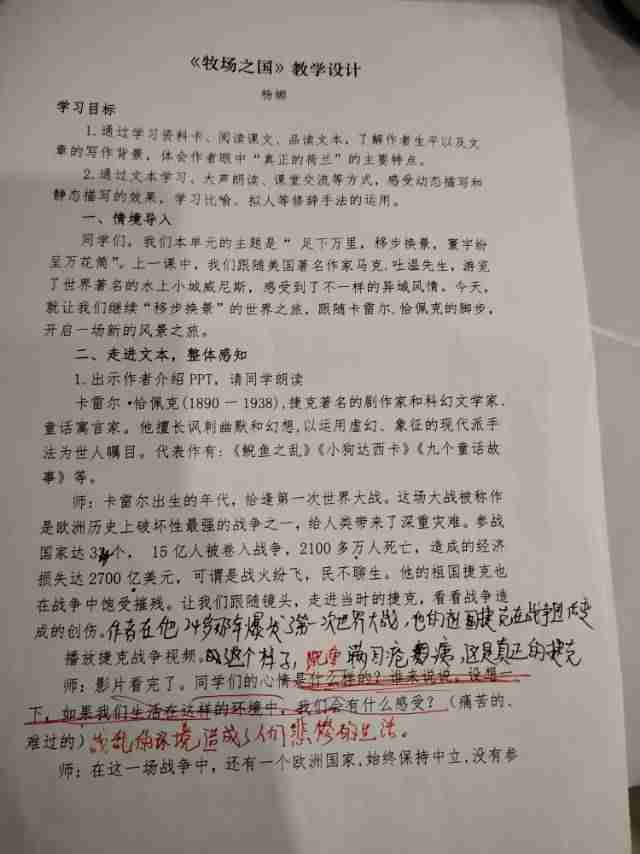 《牧场之国》教学设计
杨娜
学习目标
1.通过学习资料卡、阅读课文、品读文本，了解作者生平以及文
章的写作背景，体会作者眼中“真正的荷兰”的主要特点。
2.通过文本学习、大声朗读、课堂交流等方式，感受动态描写和
静态描写的效果，学习比喻、拟人等修辞手法的运用。
一、情境导入
同学们，我们本单元的主题是“ 足下万里，移步换景，寰宇纷
呈万花筒”。上一课中，我们跟随美国著名作家马克.吐温先生，游览
了世界著名的水上小城威尼斯，感受到了不一样的异域风情。今天，
就让我们继续“移步换景”的世界之旅，跟随卡雷尔.恰佩克的脚步，
开启一场新的风景之旅。
二、走进文本，整体感知
1.出示作者介绍PPT，请同学朗读
卡雷尔·恰佩克(1890 — 1938),捷克著名的剧作家和科幻文学家、
童话寓言家。他擅长讽刺幽默和幻想,以运用虚幻、象征的现代派手
法为世人瞩目。代表作有:《鲵鱼之乱》《小狗达西卡》《九个童话故
事》等。
师：卡雷尔出生的年代，恰逢第一次世界大战。这场大战被称作
是欧洲历史上破坏性最强的战争之一，给人类带来了深重灾难。参战
国家达 3 个， 15 亿人被卷入战争，2100 多万人死亡，造成的经济
损失达 2700 亿美元，可谓是战火纷飞，民不聊生。他的祖国捷克也
在战争中饱受摧残。让我们跟随镜头，走进当时的捷克，看看战争造
成的创伤。作者在他24岁那年爆发了第一次世界大战，他的祖国捷克在战争
播放捷克战争视频。这个样子，满目疮痍，这是真正的捷克
师：影片看完了。同学们的心情是什么样的？谁来说说，设想一
下，如果我们生活在这样的环境中，我们会有什么感受？（痛苦的、
难过的）战乱的环境造成了人们悲惨的生活。
师：在这一场战争中，还有一个欧洲国家,始终保持中立,没有参